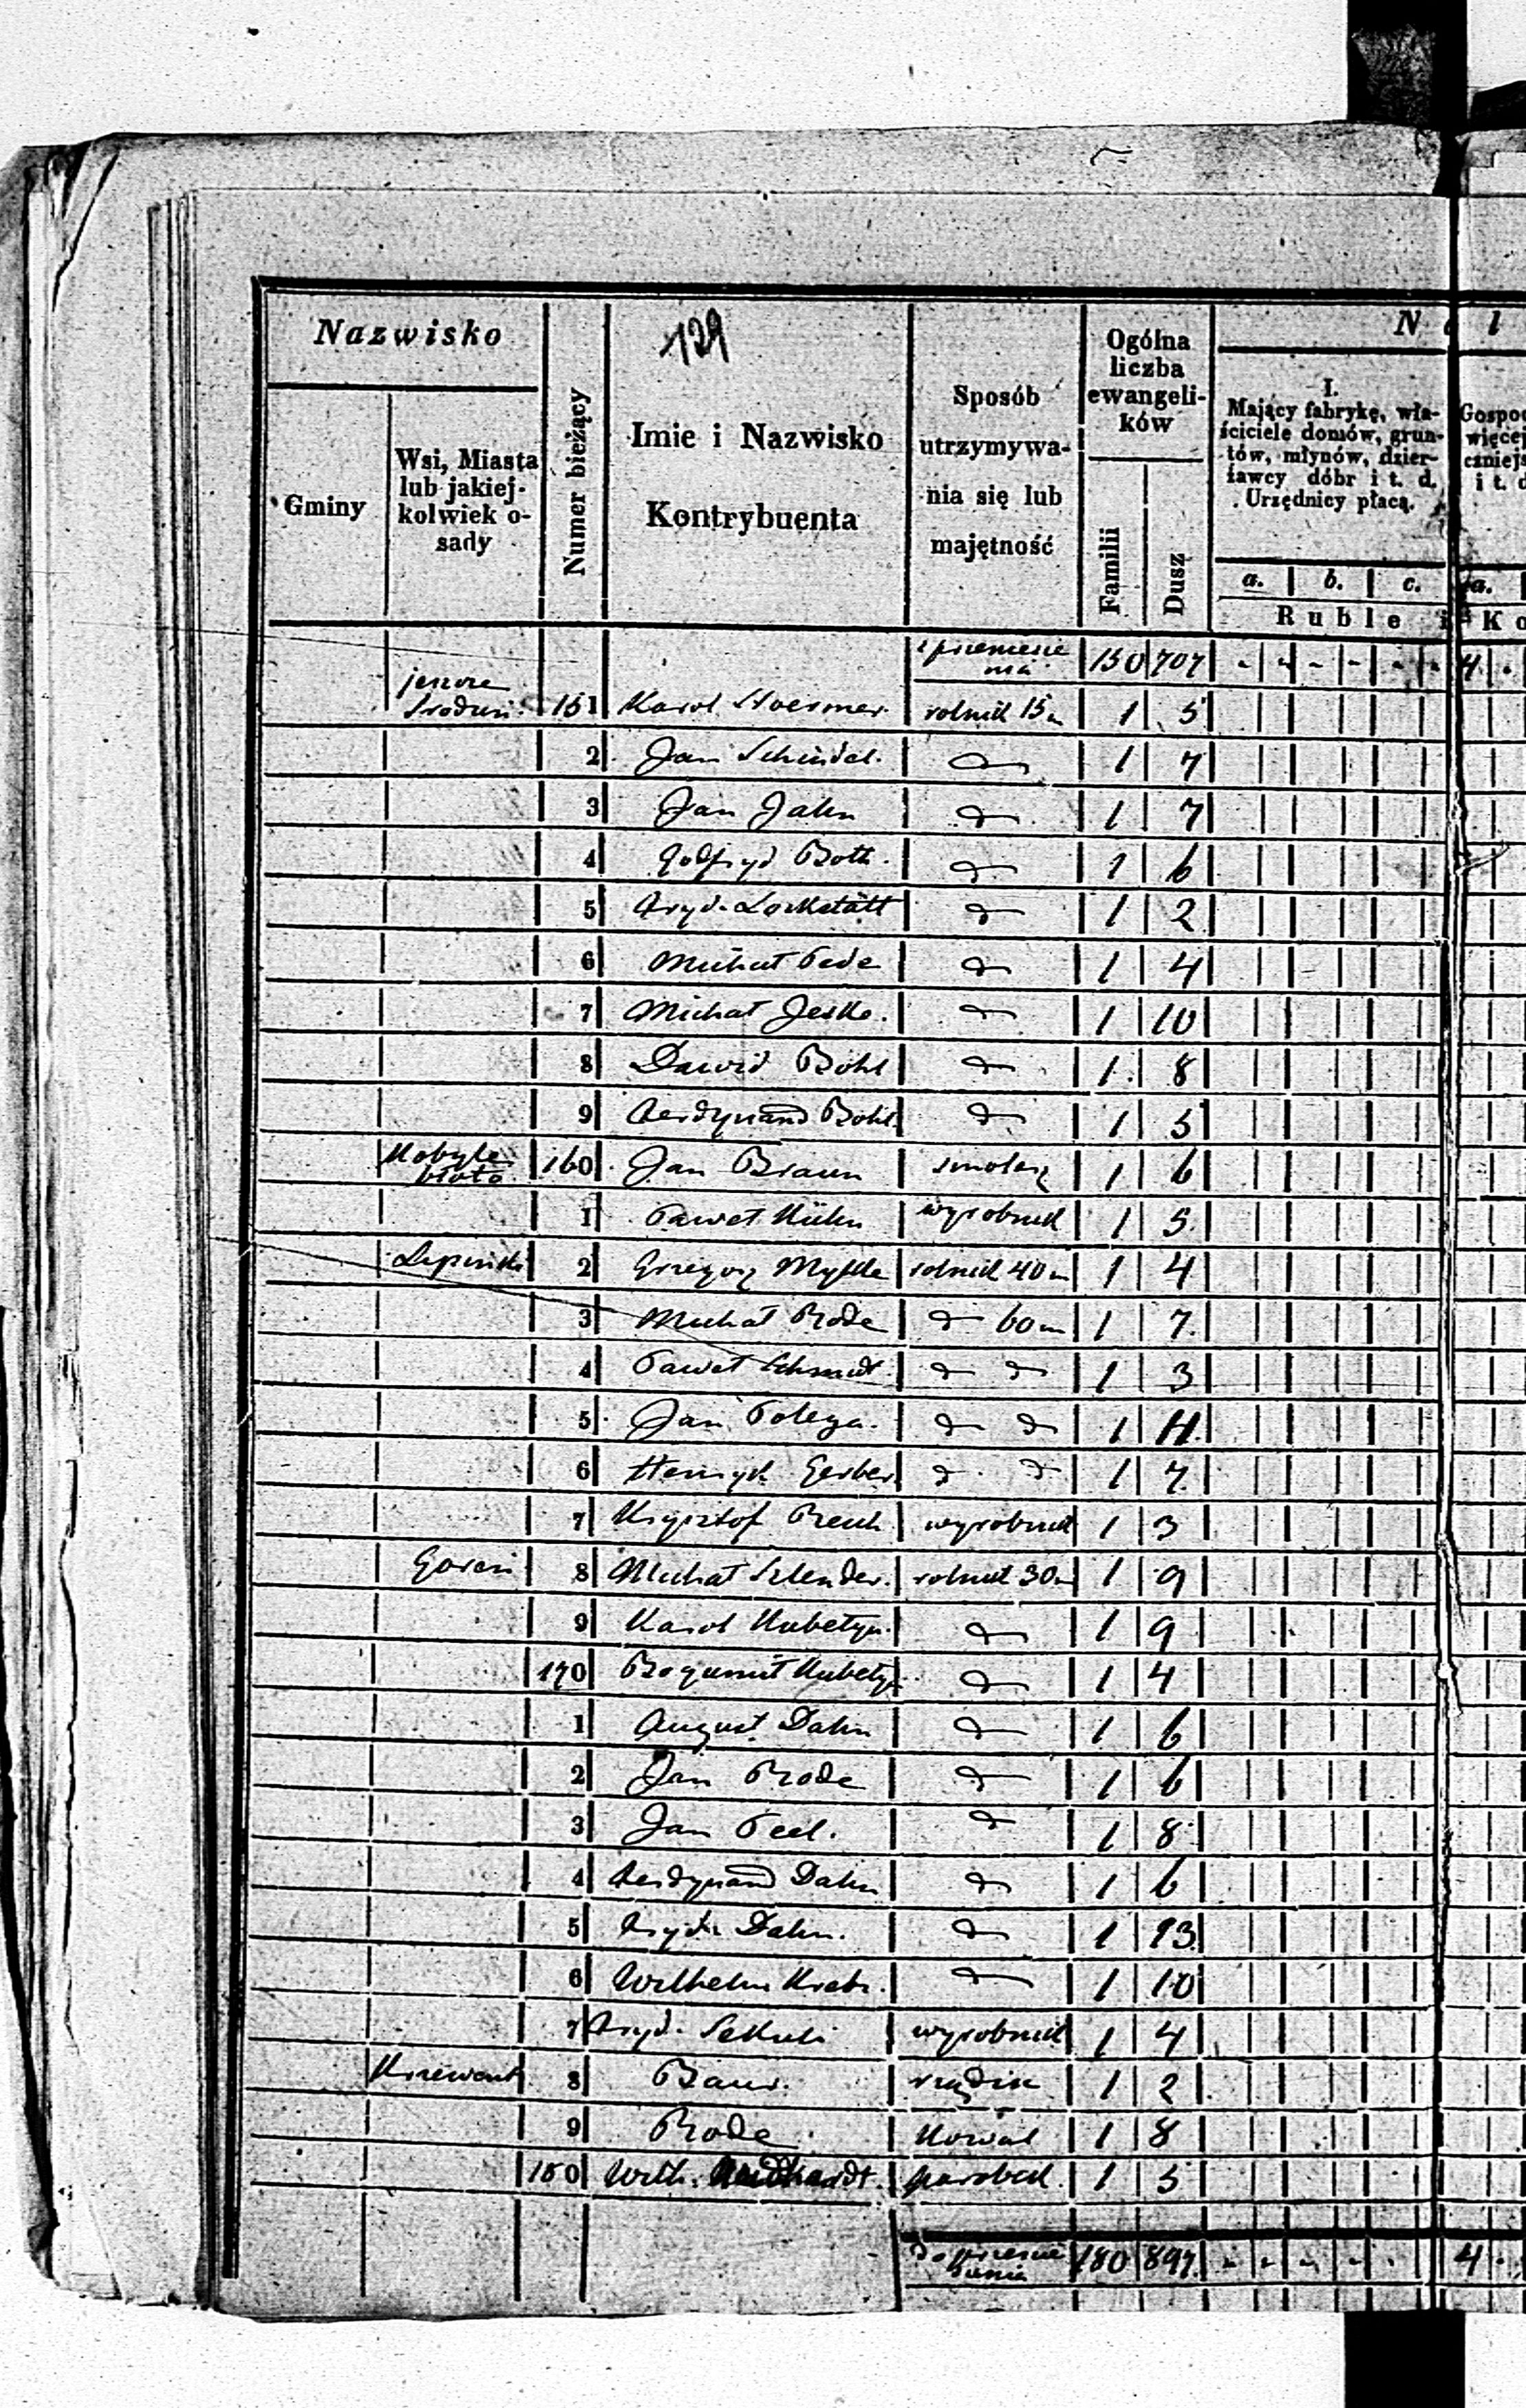 139
Nazwisko
Gminy
Wsi, Miasta
lub jakiej-
kolwiek o-
sady
Numer bieżący
Imie i Nazwisko
Kontrybuenta
Sposób
utrzymywa-
nia się lub
majętność
Ogólna
liczba
ewangeli-
ków
Familii
Dusz
I.
Mający fabrykę, wła-
ściciele domów, grun-
tów, młynów, dzier-
żawcy dóbr i t. d.
Urzędnicy płacą.
a. b. c. a.
Ruble i Ko
z przeniesie
nia 150 707 - - - - - - 4 .
151 Karol rolnik 15 m 1 5
2 Jan Schindel. d 1 7
3 Jan Jahn d 1 7
4 Godfryd Both. d 1 6
5 Fryd. Lockstätt d 1 2
6 Michał d 1 4
7 Michał Jeske. d 1 10
8 Dawid Bohl d 1 8
9 Ferdynand Bohl d 1 5
Kobyle
błota 160 Jan Braun smolarz 1 6
1 Paweł Kühn wyrobnik 1 5
2 Grzegorz rolnik 40 m 1 4
3 Michał Rode d 60 m 1 7
4 Paweł Schmidt d d 1 3
5 Jan d d 1
6 Henryk Gerber d d 1 7
7 Krysztof wyrobnik 1 3
Goreń 8 Michał Szlender. rolnik 30 m 1 9
9 Karol d 1 9
170 Bogumił d 1 4
1 August Dahn d 1 6
2 Jan Rode d 1 6
3 Jan d 1 8
4 Ferdynand Dahn d 1 6
5 Fryd. Dahn. d 1 13
6 Wilhelm d 1 10
7 Fryd. wyrobnik 1 4
Krzewent 8 rządca 1 2
9 Rode kowal 1 8
180 Wilh. parobek 1 5
do przenie
sienia 180 897 - - - - 4 .